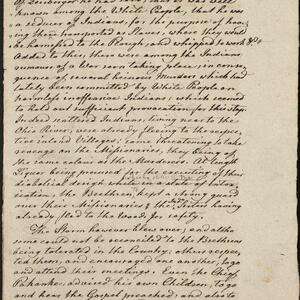 known among the White People, that he was
a seducer of Indians, for the purpose of hav-
ing them transported as Slaves, where they would
be harnessed to the Plough and whipped to work &c.
Added to this, there was among the Indians
rumours of a War soon taking place, in conse-
quence of several heinous Murders which had
lately been committed by White People on
harmless inoffensive Indians; which seemed
to had been sufficient provocation for this step.
Indeed scattered Indians, living near to the
Ohio River, were already fleeing to the respec-
tive inland Villages; some threatening to take
revenge on the Missionaries, they being of
the same colour as the Murderers. At length
being proposed for the executing of their
diabolical design while in a state of intox-
ication. The Brethren kept a strong guard
over their Missionaries & the Sisters having
already fled to the Woods for safety.
The Storm however blew over; and altho
some could not be reconciled to the Brethren
being tolerated in the Country; others respec-
ted them, and encouraged one another, to go
and attend their meetings. Even the Chief
Pakanke, advised his own Children, to go
and hear the Gospel preached; and also to